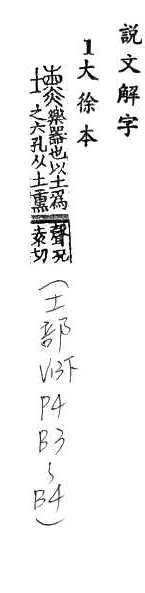 說文解字
1大徐本
壎樂器也以土爲
之六孔从土熏聲況
袁切
(土部
V13下
P4
B3
~
B4)